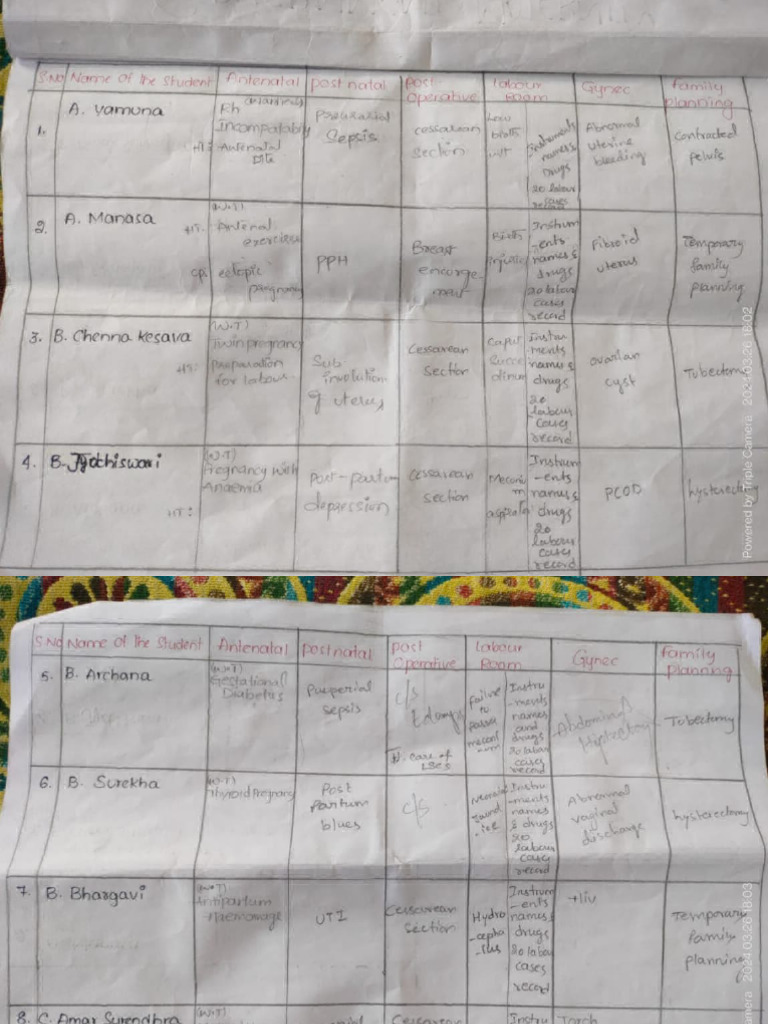 S.No Name Of the Student Antenatal post natal post Operative labour Room Gynec family planning
1. A. Yamuna
Rh
Incompatability
HT: Antenatal
Diet
Sepsis
cessarean
section
Low
birth
Instruments
names
drugs
20 labour
cases
Abnormal
uterine
bleeding
Contracted
pelvis
2. A. Manasa
(W.T)
HT: Antenal
exercises
cp: ectopic
pregnancy
PPH
Breast
encorge-
ment
Birth
injuries
Instrum
ents
names &
drugs
20 labour
cases
record
Fibroid
uterus
Temporary
family
planning
3. B. Chenna Kesava
(W.T)
Twin pregnancy
HT: Preparation
for labour
Sub
involution
of uterus
Cessarean
Section
Caput
Succe
dinum
Instru
-ments
names &
drugs
20
labour
cases
record
ovarian
cyst
Tubectomy
4. B. Jyothiswari
(W.T)
Pregnancy with
Anaemia
HT:
post-partum
depression
cessarean
section
Meconiu
m
aspiratn
Instrum
-ents
names &
drugs
20
labour
cases
record
PCOD
hysterectomy
Powered by Triple Camera 2024.03.26 18:02
S.No Name Of the Student Antenatal postnatal post Operative labour Room Gynec family planning
5. B. Archana
(W.T)
Gestational
Diabetes
Puerperial
sepsis
c/s
N. care of
LSCS
Failure
to
passa
meconi
um
Instru
-ments
names
and
drugs
20 labour
cases
record
Abdominal
Tubectomy
6. B. Surekha
(W.T)
Thyroid Pregnancy
Post
Partum
blues
c/s
Neonatal
Jaund
-ice
Instru
-ments
names
& drugs
20
labour
cases
record
Abnormal
vaginal
discharge
hysterectomy
7. B. Bhargavi
(W.T)
Antipartum
Haemorrage
UTI
Cessarean
Section
Hydro
-cepha
-lus
Instrum
-ents
names &
drugs
20 labour
cases
record
HIV
Temporary
family
planning
camera 2024.03.26 18:03
8. C. Amar Surendhra
(W.T)
Cessarean
Instru
Torch